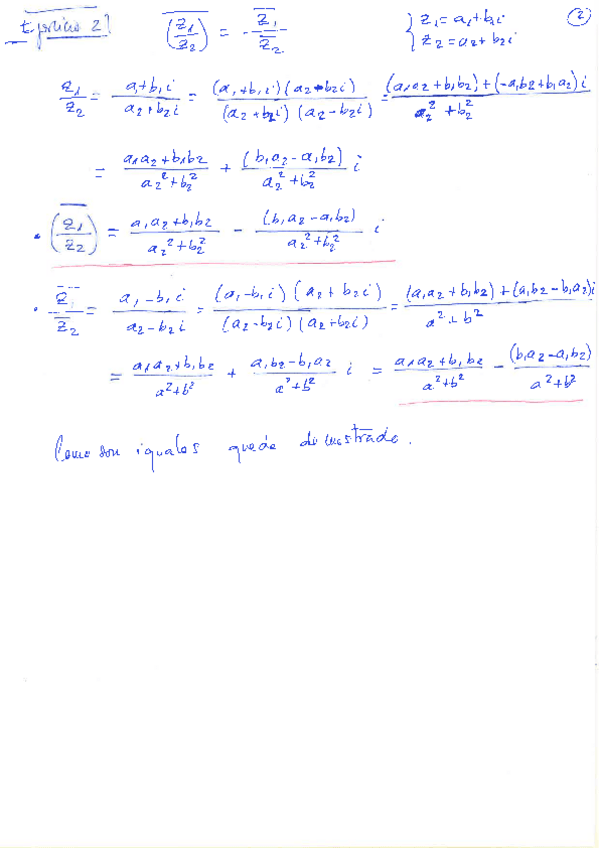 Ejercicio 2) \overline{(z₁/z₂)} = \overline{z₁}/\overline{z₂} { z₁ = a₁ + b₁i (2)
z₂ = a₂ + b₂i
z₁/z₂ = (a₁ + b₁i)/(a₂ + b₂i) = (a₁ + b₁i)(a₂ - b₂i)/(a₂ + b₂i)(a₂ - b₂i) = ((a₁a₂ + b₁b₂) + (-a₁b₂ + b₁a₂)i)/(a₂² + b₂²)
= (a₁a₂ + b₁b₂)/(a₂² + b₂²) + (b₁a₂ - a₁b₂)/(a₂² + b₂²) i
• \overline{(z₁/z₂)} = (a₁a₂ + b₁b₂)/(a₂² + b₂²) - (b₁a₂ - a₁b₂)/(a₂² + b₂²) i
• \overline{z₁}/\overline{z₂} = (a₁ - b₁i)/(a₂ - b₂i) = (a₁ - b₁i)(a₂ + b₂i)/(a₂ - b₂i)(a₂ + b₂i) = ((a₁a₂ + b₁b₂) + (a₁b₂ - b₁a₂)i)/(a² + b²)
= (a₁a₂ + b₁b₂)/(a² + b²) + (a₁b₂ - b₁a₂)/(a² + b²) i = (a₁a₂ + b₁b₂)/(a² + b²) - (b₁a₂ - a₁b₂)/(a² + b²)
Como son iguales queda demostrado.